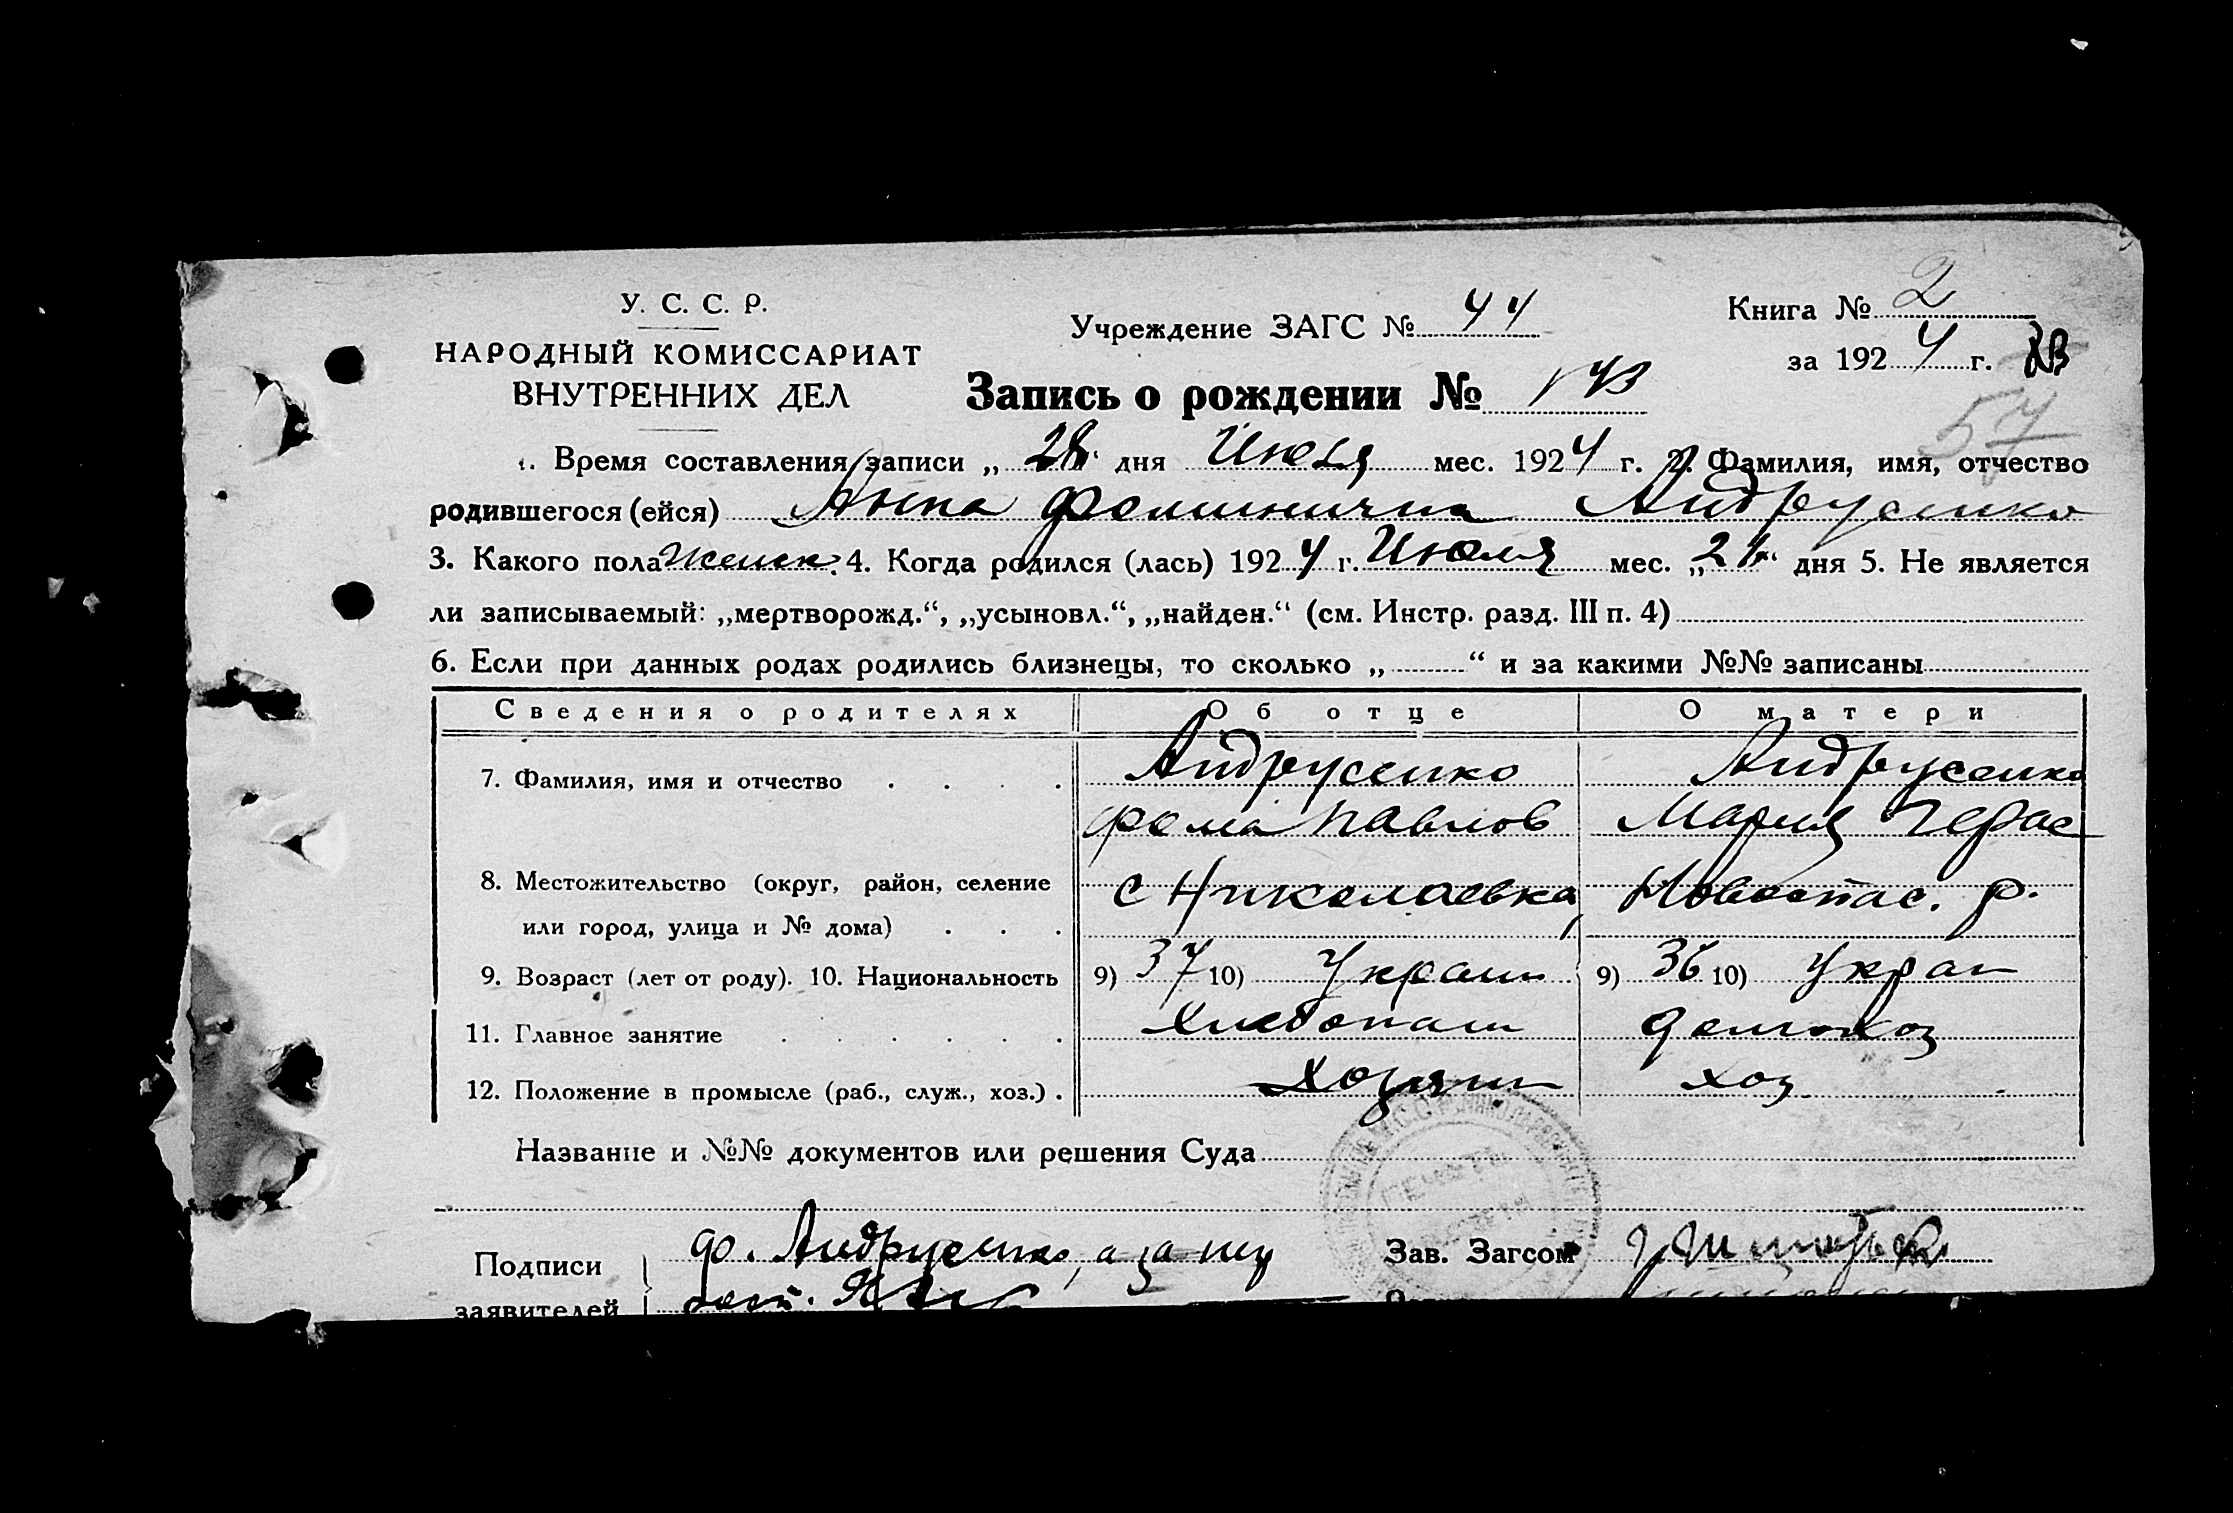 У. С. С. Р.
НАРОДНЫЙ КОМИССАРИАТ
ВНУТРЕННИХ ДЕЛ
Учреждение ЗАГС № 44
Книга № 2
за 1924 г.
57
Запись о рождении №
1. Время составления записи „28“ дня Июля мес. 1924 г. 2. Фамилия, имя, отчество
родившегося (ейся) Анна Фоминична Андрусенко
3. Какого пола Женск. 4. Когда родился (лась) 1924 г. Июля мес. „ “ дня 5. Не является
ли записываемый: „мертворожд.“, „усыновл.“, „найден.“ (см. Инстр. разд. III п. 4)
6. Если при данных родах родились близнецы, то сколько „ “ и за какими №№ записаны
Сведения о родителях Об отце О матери
7. Фамилия, имя и отчество . . . . Андрусенко Андрусенко
Фома Павлов Мария Герас
8. Местожительство (округ, район, селение с Николаевка, Новоспас. р.
или город, улица и № дома) . . .
9. Возраст (лет от роду). 10. Национальность 9) 37 10) Украин 9) 36 10) Украин
11. Главное занятие . . . . . . Хлебопаш домохоз
12. Положение в промысле (раб., служ., хоз.) . Хозяин хоз
Название и №№ документов или решения Суда
Подписи Ф. Андрусенко, а за не Зав. Загсом
заявителей